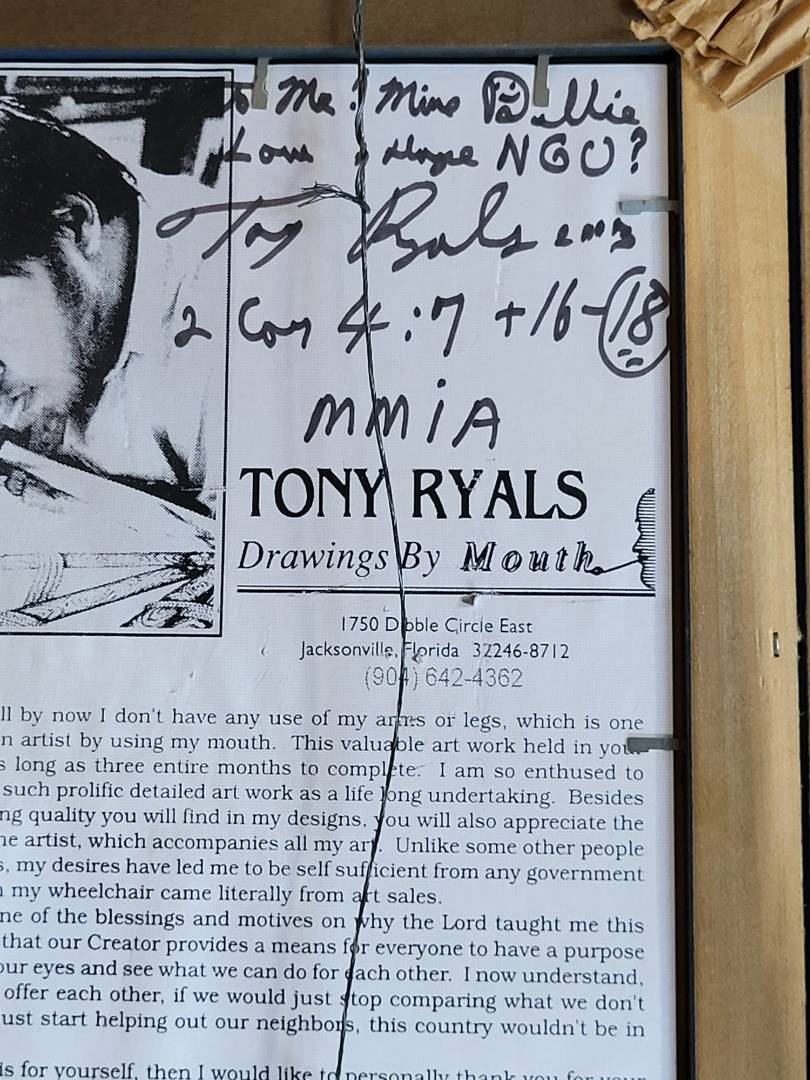 to Me! Mine Billie
Love & Hope NGU?
Tony Ryals
2 Cor 4:7 +16-18
MMIA
TONY RYALS
Drawings By Mouth
1750 Dibble Circle East
Jacksonville, Florida 32246-8712
(904) 642-4362
ll by now I don't have any use of my arms or legs, which is one
n artist by using my mouth. This valuable art work held in your
s long as three entire months to complete. I am so enthused to
such prolific detailed art work as a life long undertaking. Besides
ng quality you will find in my designs, you will also appreciate the
he artist, which accompanies all my art. Unlike some other people
s, my desires have led me to be self sufficient from any government
n my wheelchair came literally from art sales.
ne of the blessings and motives on why the Lord taught me this
that our Creator provides a means for everyone to have a purpose
our eyes and see what we can do for each other. I now understand,
offer each other, if we would just stop comparing what we don't
ust start helping out our neighbors, this country wouldn't be in
is for yourself, then I would like to personally thank you for your